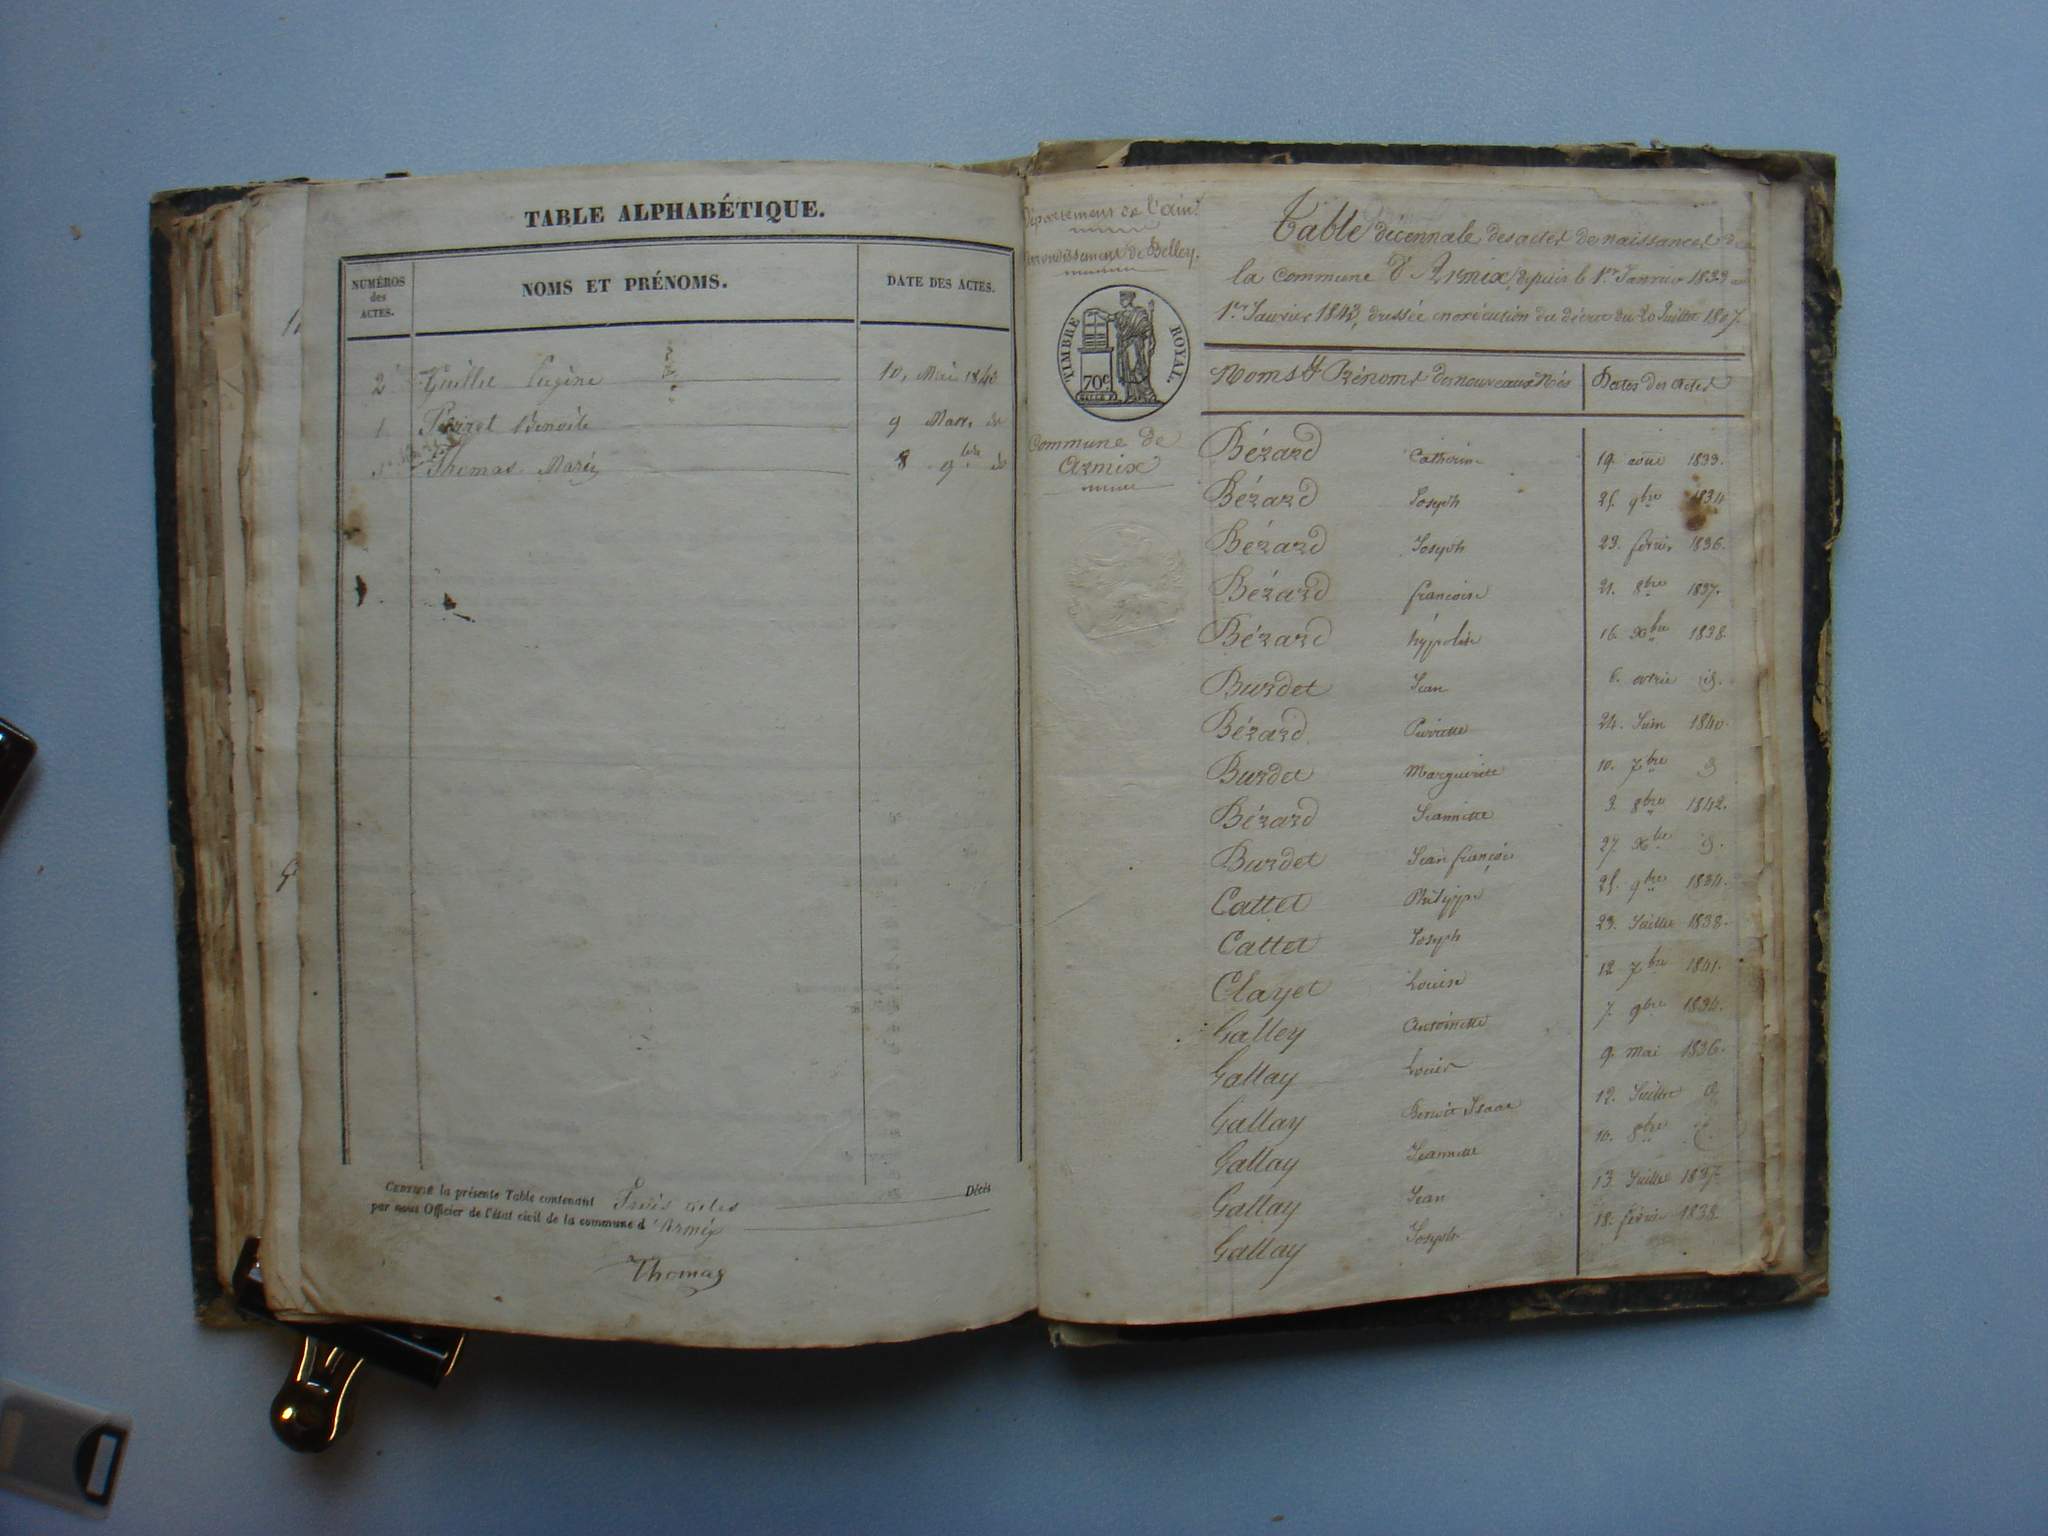 TABLE ALPHABÉTIQUE.
NUMÉROS
des
ACTES.
NOMS ET PRÉNOMS.
DATE DES ACTES.
2 Guillet Eugène 10, Mai 1843
1 Perret Benoite 9 Mars do
3 Thomas Marie 8 9bre do
CERTIFIÉ la présente Table contenant Trois actes Décès
par nous Officier de l'état civil de la commune d'Armix
Thomas
Département de l'ain
arrondissement de Belley.
TIMBRE ROYAL.
70c
Commune de
Armix
Table décennale des actes de naissances de
la commune d'Armix, depuis le 1er Janvier 1833 au
1er Janvier 1843, dressée en exécution du décret du 20 Juillet 1807.
Noms & Prénoms des nouveaux Nés Dates des Actes
Bérard Catherine 19. aout 1833.
Bérard Joseph 25. 9bre 1834
Bérard Joseph 23. fevrier 1836.
Bérard francoise 21. 8bre 1837.
Bérard hÿppolite 16. Xbre 1838.
Burdet Jean 6. avril id.
Bérard Pierrette 24. Juin 1840.
Burdet Marguerite 10. 7bre id
Bérard Jeannette 3. 8bre 1842.
Burdet Jean françois 27 Xbre id.
Cattet Philippe 25. 9bre 1834.
Cattet Joseph 23. Juillet 1838.
Clayet Louise 12 7bre 1841.
Galley Antoinette 7. 9bre 1834.
Gallay Louis 9. mai 1836.
Gallay Benoit Isaac 12. Juillet id
Gallay Jeannette 10. 8bre id.
Gallay Jean 13. Juillet 1837.
Gallay Joseph 18. fevrier 1838